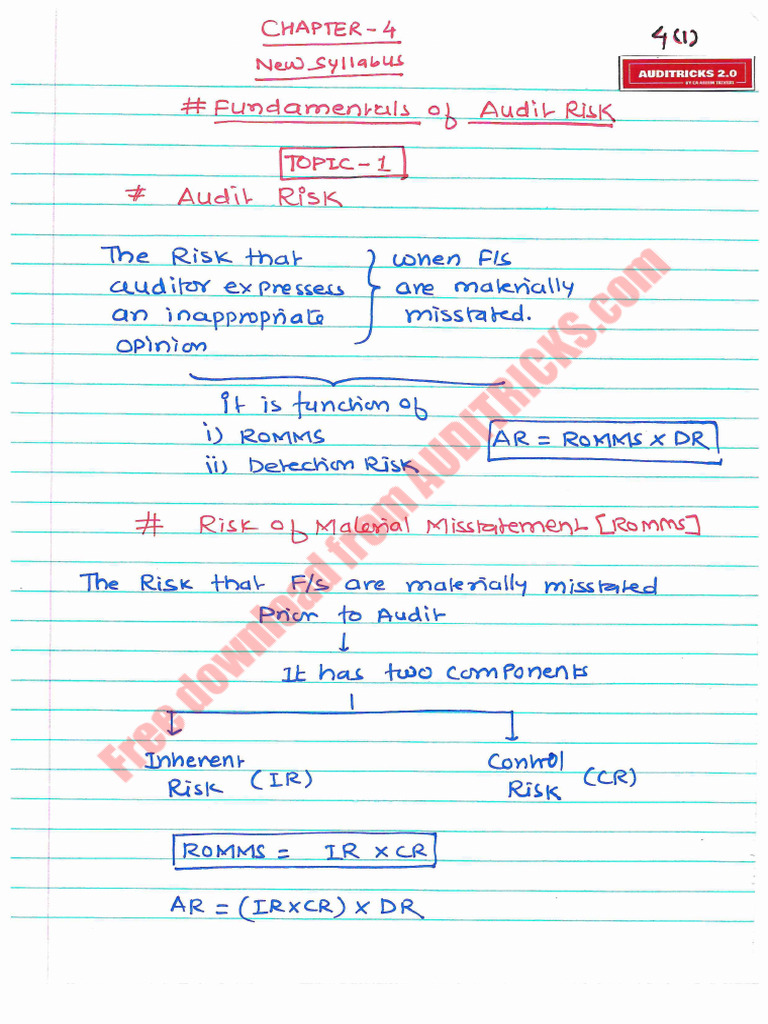 CHAPTER-4
4(1)
New Syllabus
AUDITRICKS 2.0
# Fundamentals of Audit Risk
TOPIC-1
# Audit Risk
The Risk that auditor expresses an inappropriate opinion
when F/s are materially misstated.
It is function of
i) ROMMS
ii) Detection Risk
AR = ROMMS X DR
# Risk of Material Misstatement [ROMMS]
The Risk that F/s are materially misstated
Prior to Audit
It has two components
Inherent Risk (IR)
Control Risk (CR)
ROMMS = IR X CR
AR = (IRXCR) X DR
Free download from AUDITRICKS.com